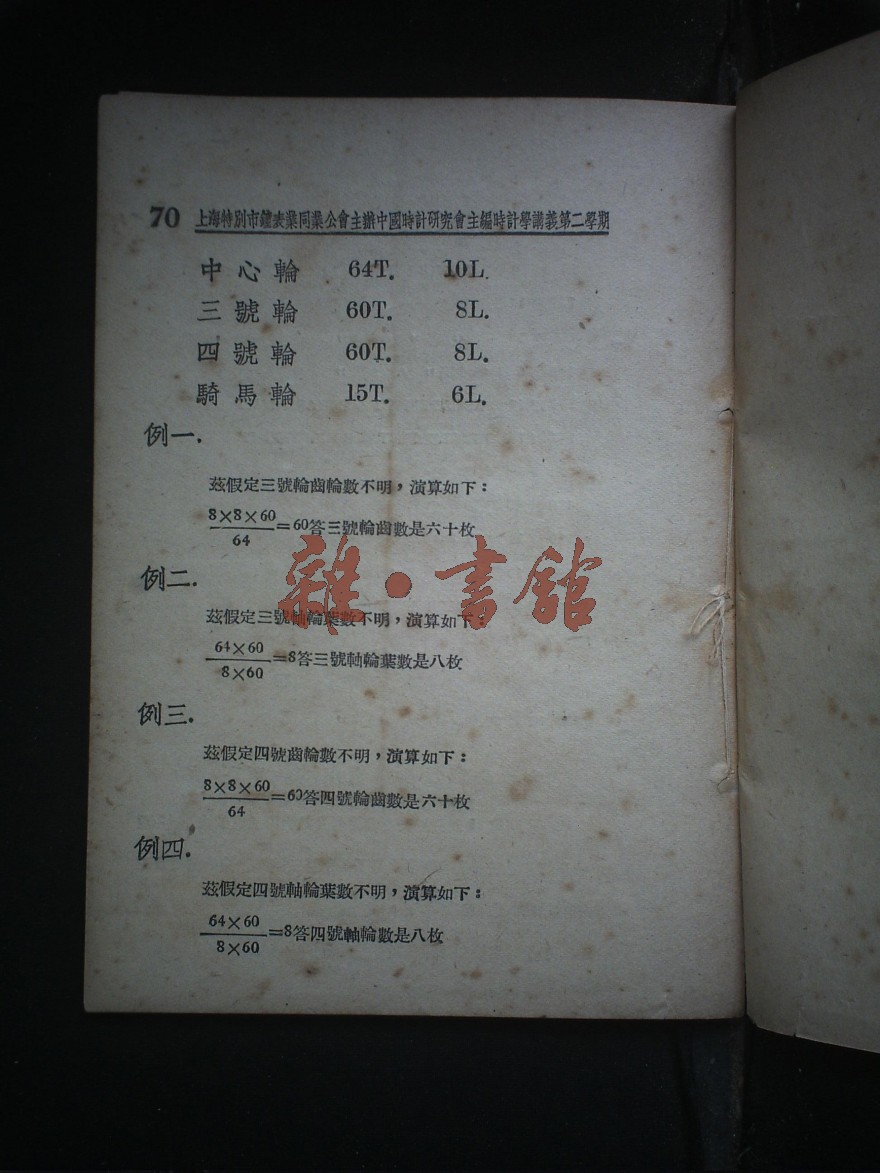 70 上海特別市鐘表業同業公會主辦中國時計研究會主編時計學講義第二學期
中心輪 64T. 10L.
三號輪 60T. 8L.
四號輪 60T. 8L.
騎馬輪 15T. 6L.
例一.
茲假定三號輪齒輪數不明，演算如下：
8×8×60
64
=60答三號輪齒數是六十枚
例二.
茲假定三號軸輪葉數不明，演算如下：
64×60
8×60
=8答三號軸輪葉數是八枚
例三.
茲假定四號齒輪數不明，演算如下：
8×8×60
64
=60答四號輪齒數是六十枚
例四.
茲假定四號軸輪葉數不明，演算如下：
64×60
8×60
=8答四號軸輪數是八枚
雜·書館